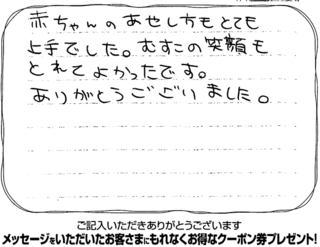 赤ちゃんのあやし方もとても
上手でした。むすこの笑顔も
とれてよかったです。
ありがとうございました。
ご記入いただきありがとうございます
メッセージをいただいたお客さまにもれなくお得なクーポン券プレゼント!